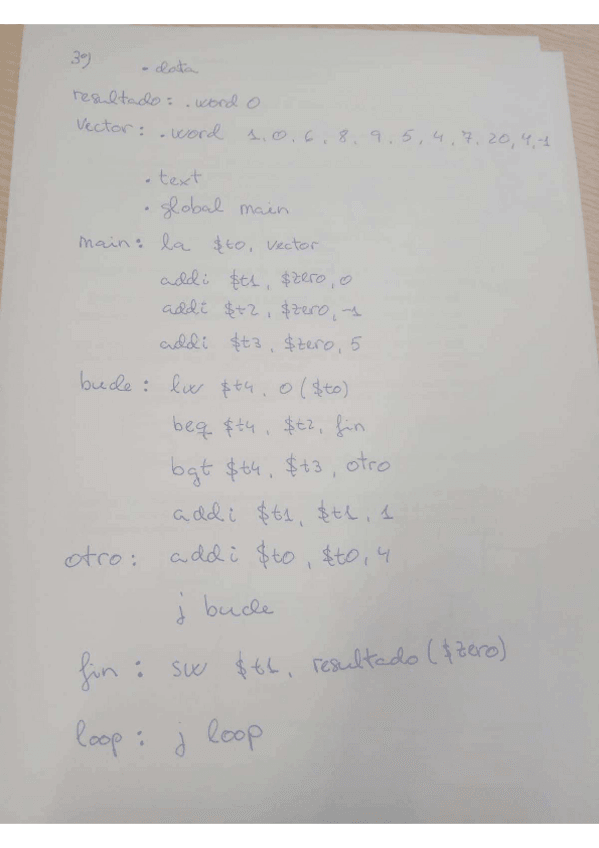 39)
.data
resultado: .word 0
vector: .word 1, 0, 6, 8, 9, 5, 4, 7, 20, 4, -1
.text
.global main
main: la $t0, vector
addi $t1, $zero, 0
addi $t2, $zero, -1
addi $t3, $zero, 5
bucle: lw $t4, 0($t0)
beq $t4, $t2, fin
bgt $t4, $t3, otro
addi $t1, $t1, 1
otro: addi $t0, $t0, 4
j bucle
fin: sw $t1, resultado($zero)
loop: j loop